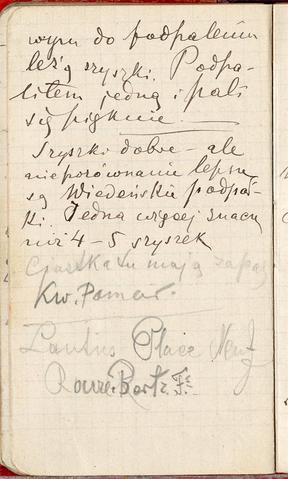 wym do podpalenia
leżą szyszki. Podpa-
liłem jedną i pali
się pięknie.
Szyszki dobre – ale
nieporównanie lepsze
są Wiedeńskie podpał-
ki. Jedna więcej znaczy
niż 4 – 5 szyszek
Ciastka tu mają zapach
Kw. Pomar.
Place